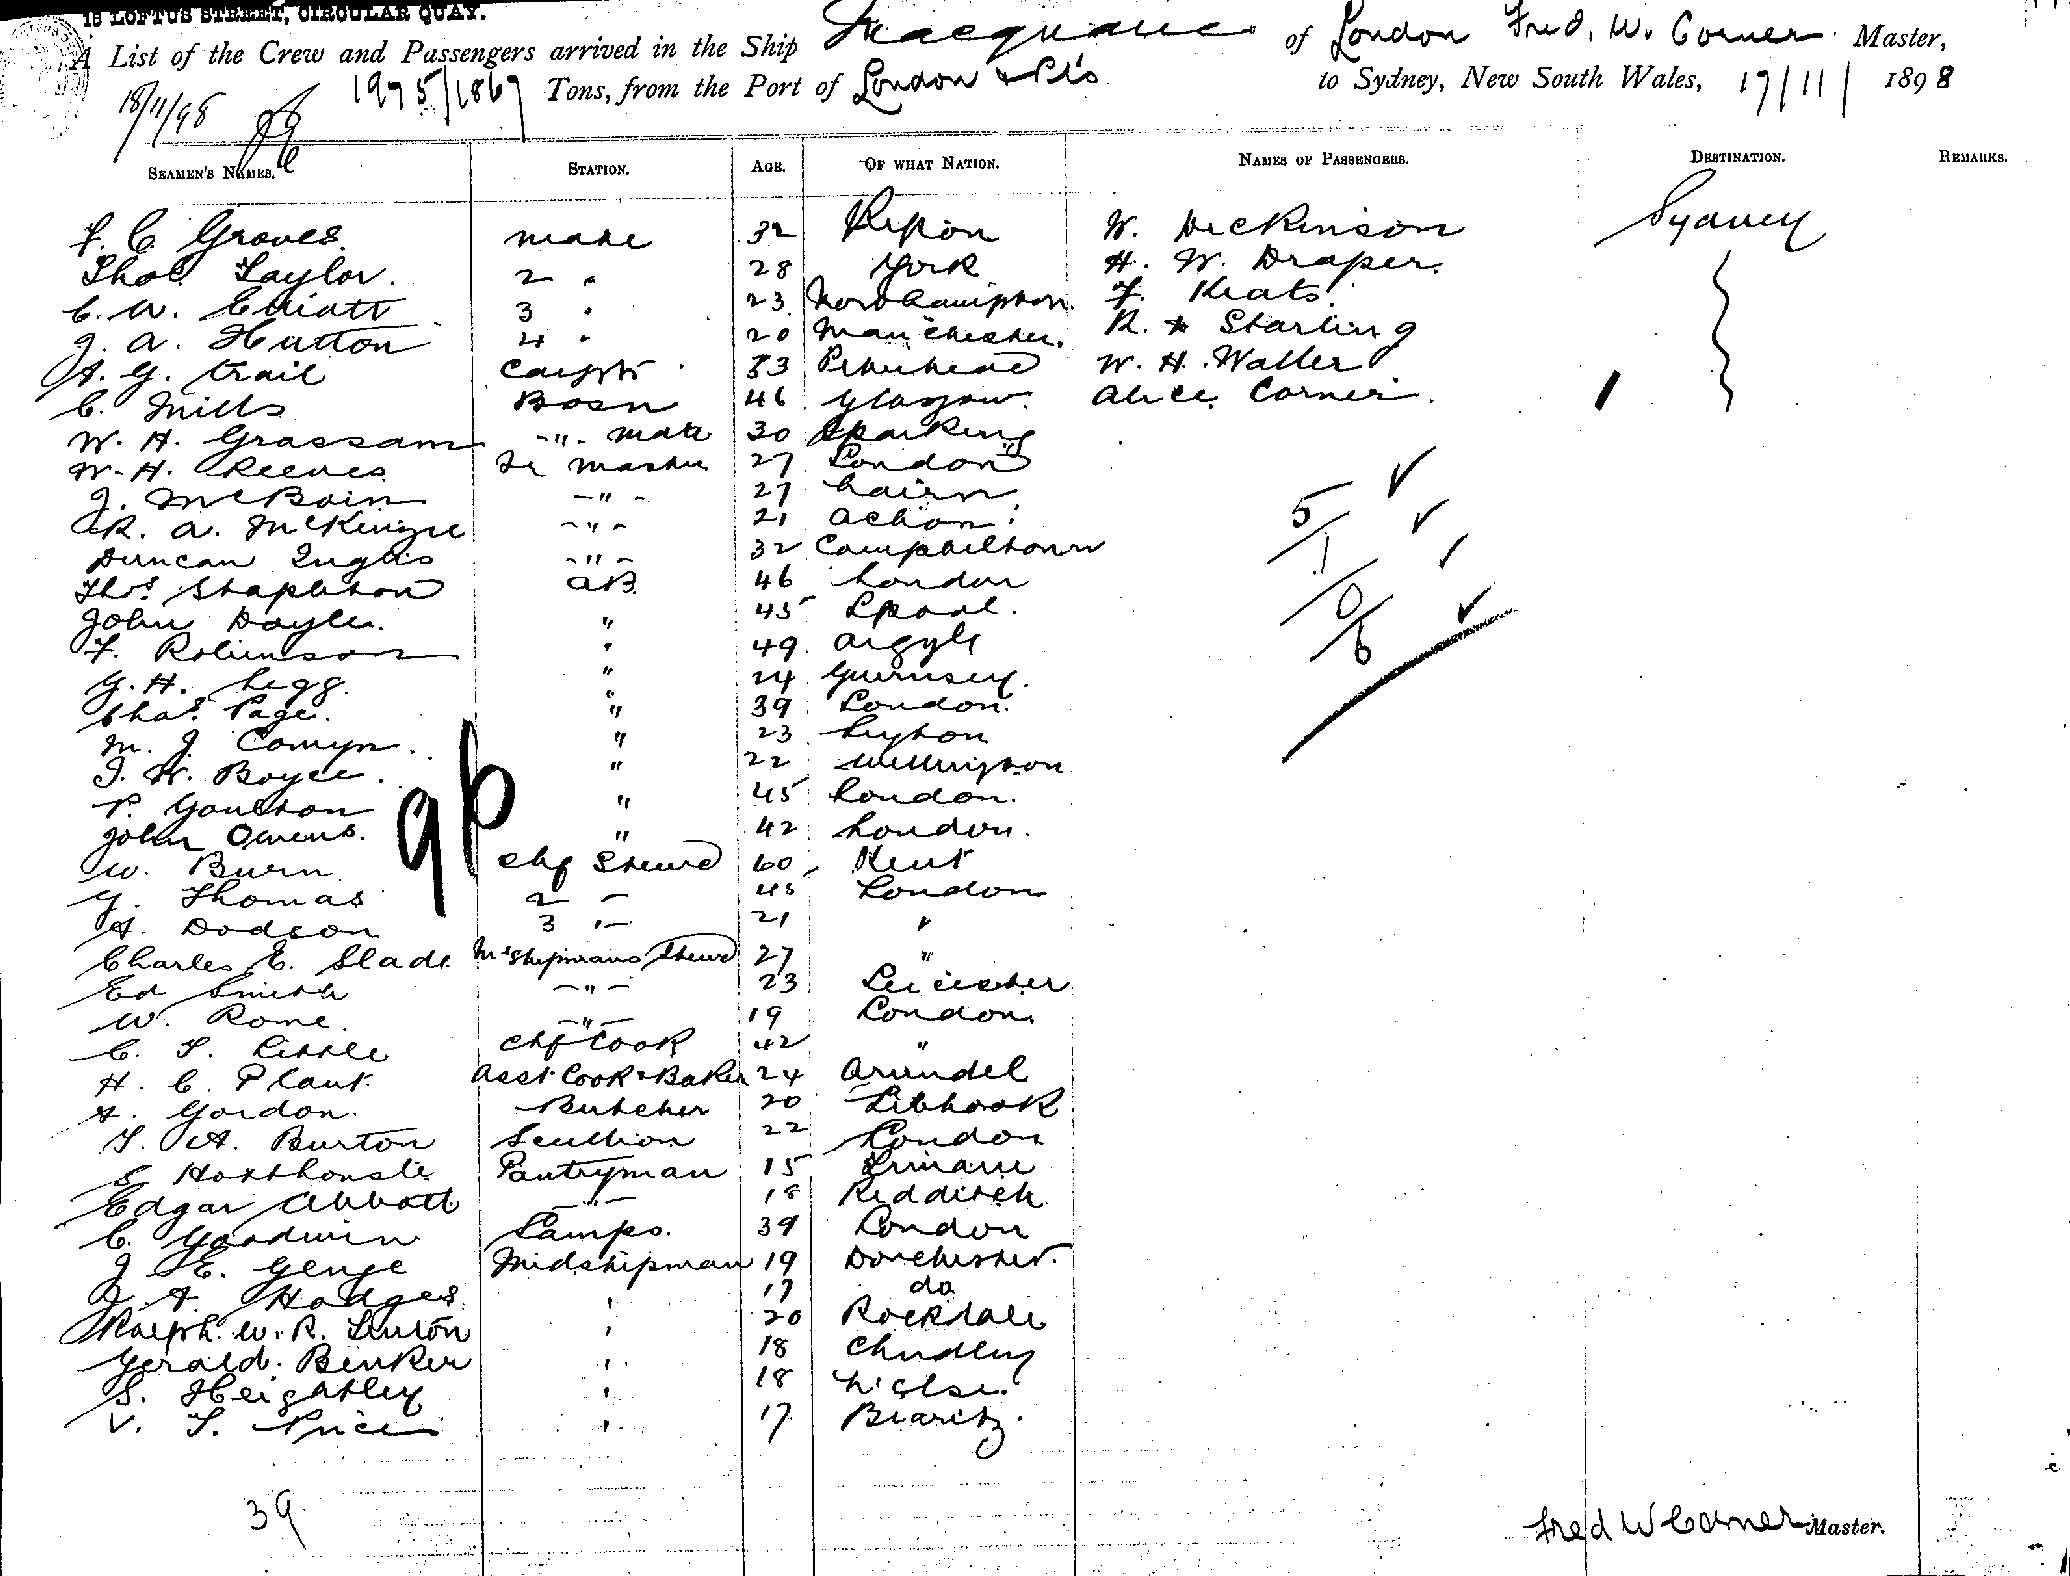 18 LOFTUS STREET, CIRCULAR QUAY.
A List of the Crew and Passengers arrived in the Ship Macquarie of London Fred. W. Corner Master,
18/11/98 1975/1869 Tons, from the Port of London & Pts to Sydney, New South Wales, 17/11/ 1898
SEAMEN'S NAMES. STATION. AGE. OF WHAT NATION. NAMES OF PASSENGERS. DESTINATION. REMARKS.
F. C. Groves. mate 32 Ripon W. Dickinson Sydney
Thos Taylor. 2 " 28 York H. W. Draper.
C. W. Elliott 3 " 23 Northampton. F. Keats.
J. A. Hutton 4 " 20 Manchester. R. Starling
A. G. Trail Carptr 33 Peterhead W. H. Waller
C. Mills Bosn 46 Glasgow. Alice Corner. 1
W. H. Grassam -"- mate 30 Barking
W. H. Reeves 27 London
J. McBain -"- 27 Cairn
R. A. McKenzie -"- 21 Acton
Duncan Inglis -"- 32 Campbeltown
Thos. Stapleton AB 46 London
John Doyle. " 45 Lpool.
F. Robinson " 49. Argyle
G. H. Legg. " 24 Guernsey.
Chas. Page. " 39 London.
M. J. Comyn. " 23 Leyton
J. W. Boyce. " 22 Wellington
P. Goulton " 45 London.
John Owens. " 42 London.
W. Burn. Chf Stewd 60 Kent
G. Thomas 2 - 45 London
A. Dodson 3 " 21 "
Charles E. Slade Midshipmans Stewd 27 "
Ed Smith -"- 23 Leicester
W. Rome. -"- 19 London
C. T. Little Chf Cook 42 "
H. C. Plant. Asst Cook & Baker 24 Arundel
A. Gordon. Butcher 20
T. A. Burton Scullion 22 London
E. Pantryman 15
Edgar Abbott -"- 18 Redditch
C. Goodwin Lamps. 39 London
J. E. Genge Midshipman 19 Dorchester.
J. A. Hodges " 17 do
Ralph. W. R. Linton " 20 Rockdale
Gerald. Benker " 18 Chudley
S. Heightley " 18
V. T. Price " 17 Biaritz.
5
1
0
6
96
39
Fred W Corner Master.